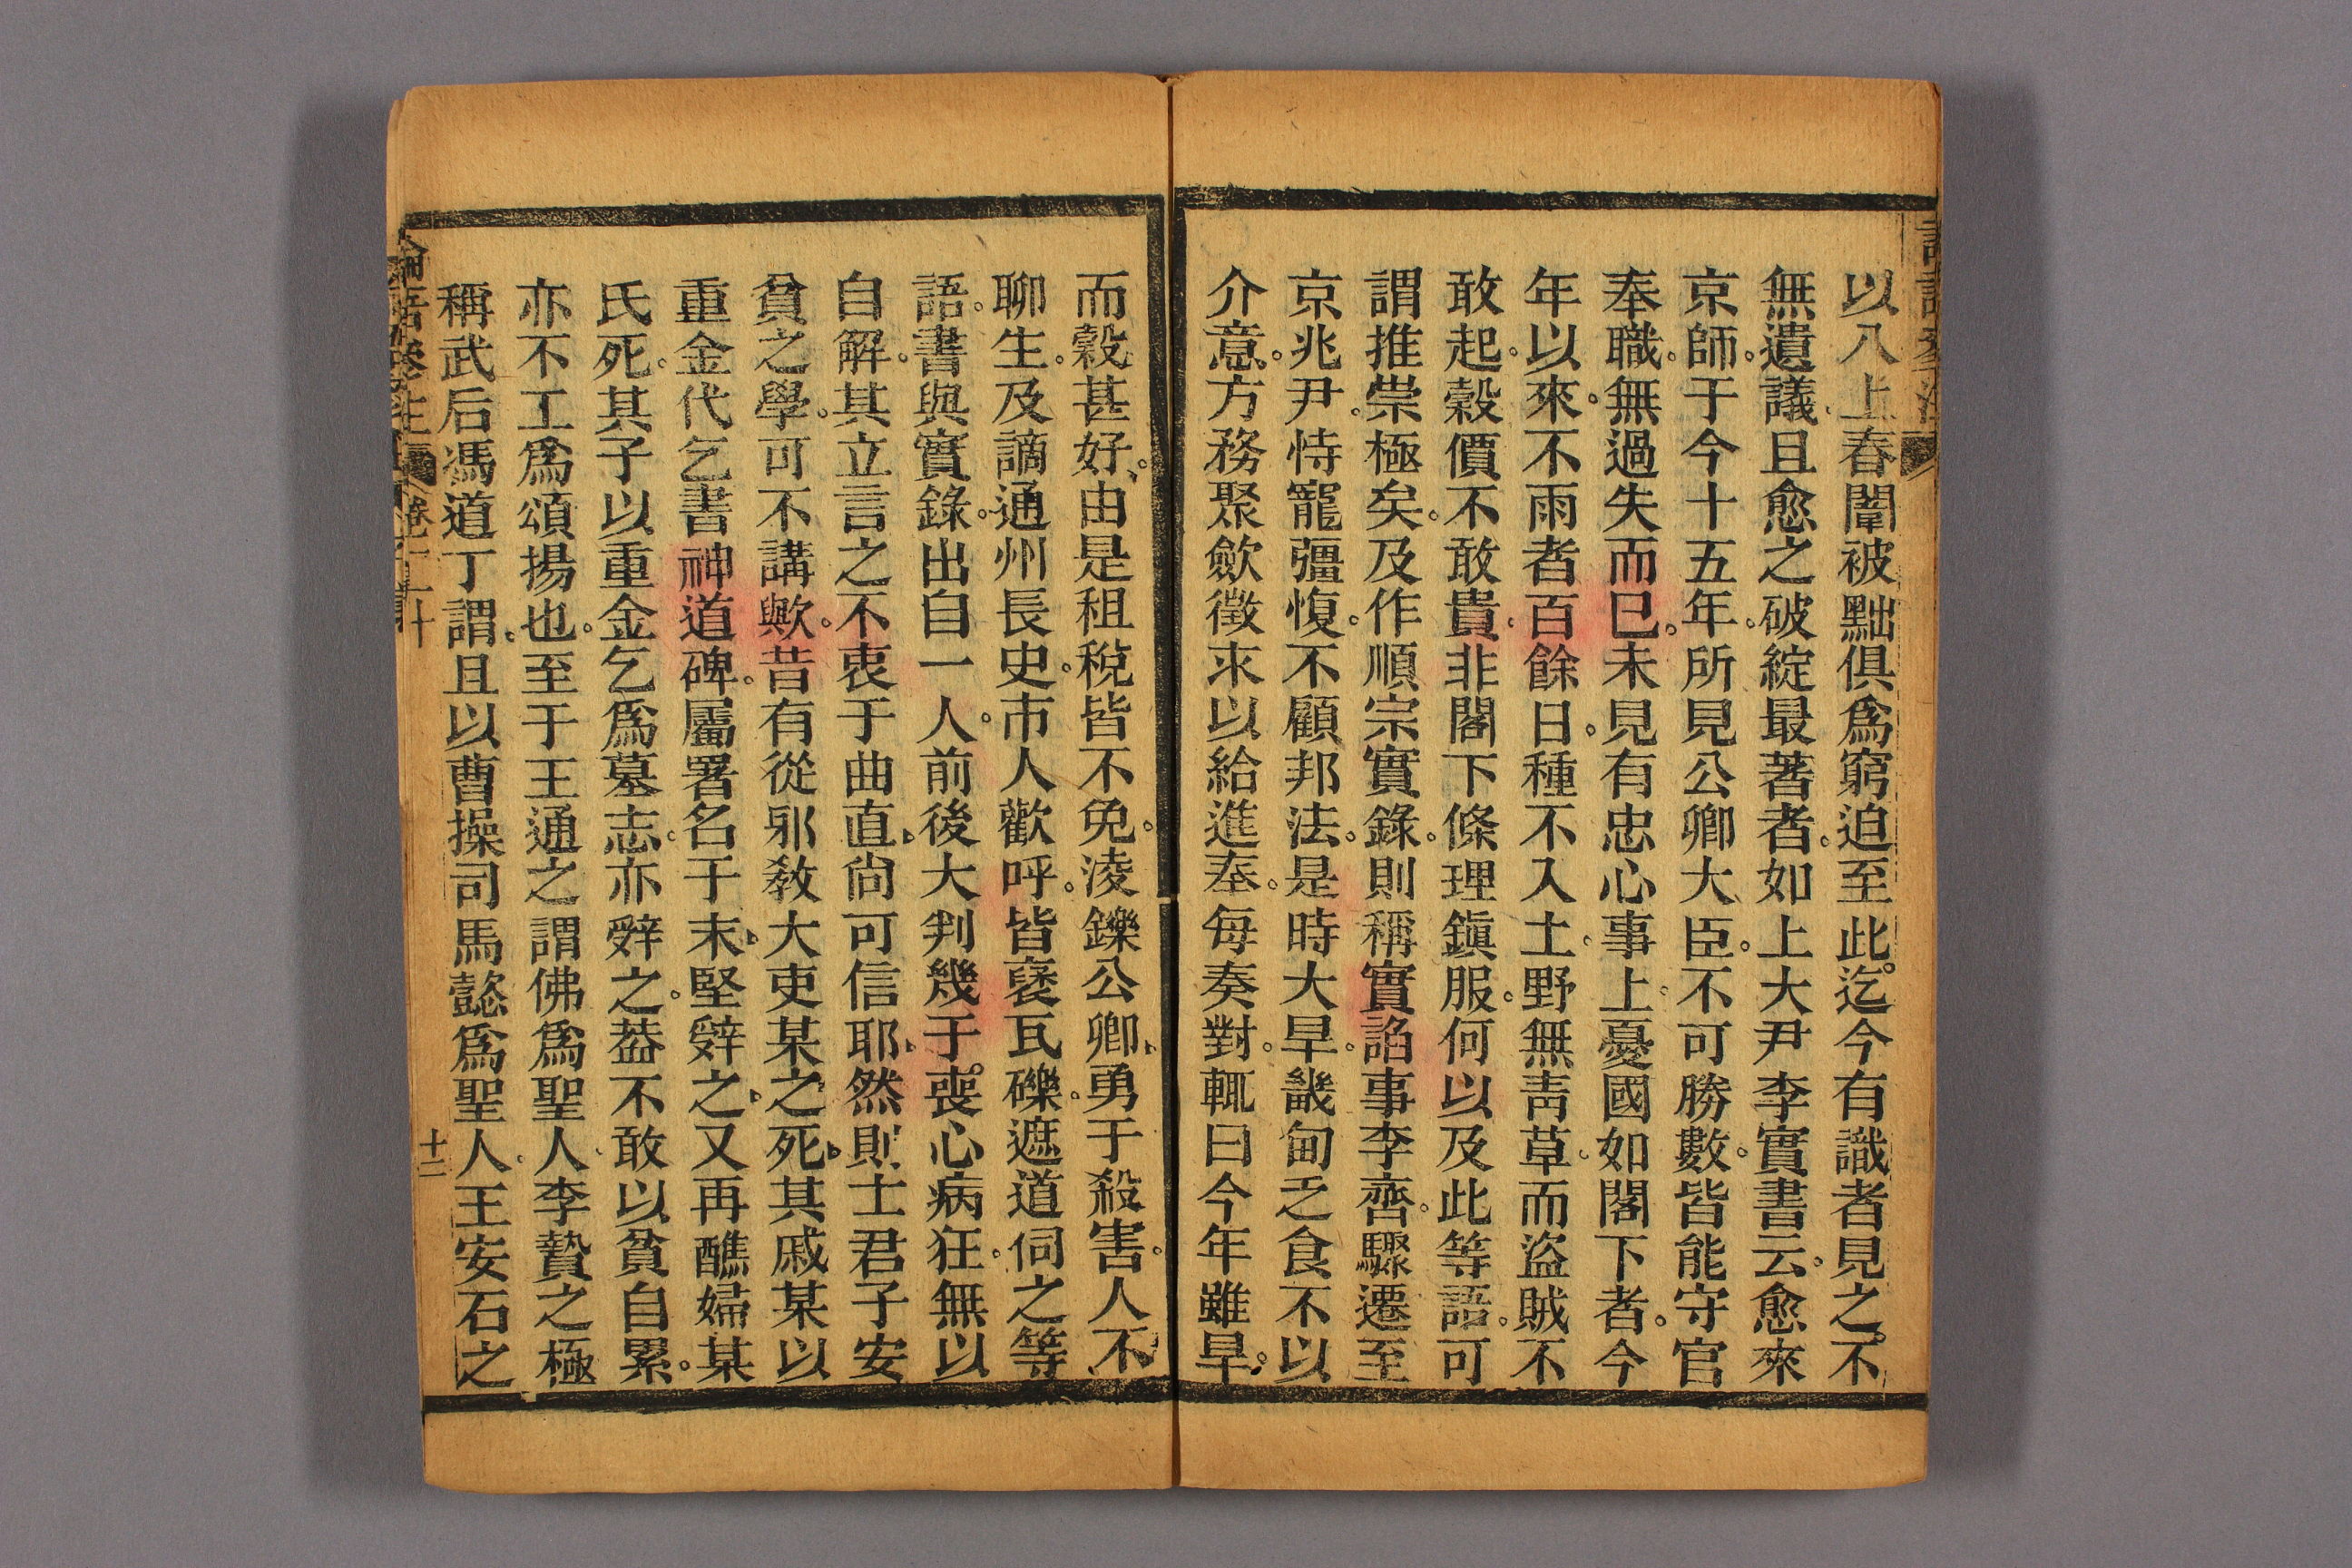 以八上春闈被黜俱爲窮迫至此。迄今有識者見之。不
無遺議。且愈之破綻最著者。如上大尹李實書云。愈來
京師。于今十五年。所見公卿大臣。不可勝數。皆能守官
奉職。無過失而已。未見有忠心事上。憂國如閣下者。今
年以來。不雨者百餘日。種不入土。野無靑草。而盜賊不
敢起。穀價不敢貴。非閣下條理鎭服。何以及此等語。可
謂推崇極矣。及作順宗實錄。則稱實諂事李齊。驟遷至
京兆尹。恃寵彊愎。不顧邦法。是時大旱。畿甸乏食。不以
介意。方務聚歛徵求。以給進奉。每奏對。輒曰今年雖旱。
而穀甚好。由是租稅皆不免。淩鑠公卿。勇于殺害。人不
聊生。及謫通州長史。市人歡呼。皆褎瓦礫。遮道伺之等
語。書與實錄。出自一人。前後大判幾于。喪心病狂。無以
自解。其立言之不衷于曲直。尙可信耶。然則士君子安
貧之學。可不講歟。昔有從邪敎大吏某之死。其戚某以
重金代乞書神道碑。屬署名于末。堅辤之。又再醮婦某
氏死。其子以重金乞爲墓志。亦辤之。葢不敢以貧自累。
亦不工爲頌揚也。至于王通之謂佛爲聖人。李贄之極
稱武后馮道丁謂。且以曹操司馬懿爲聖人。王安石之
十二